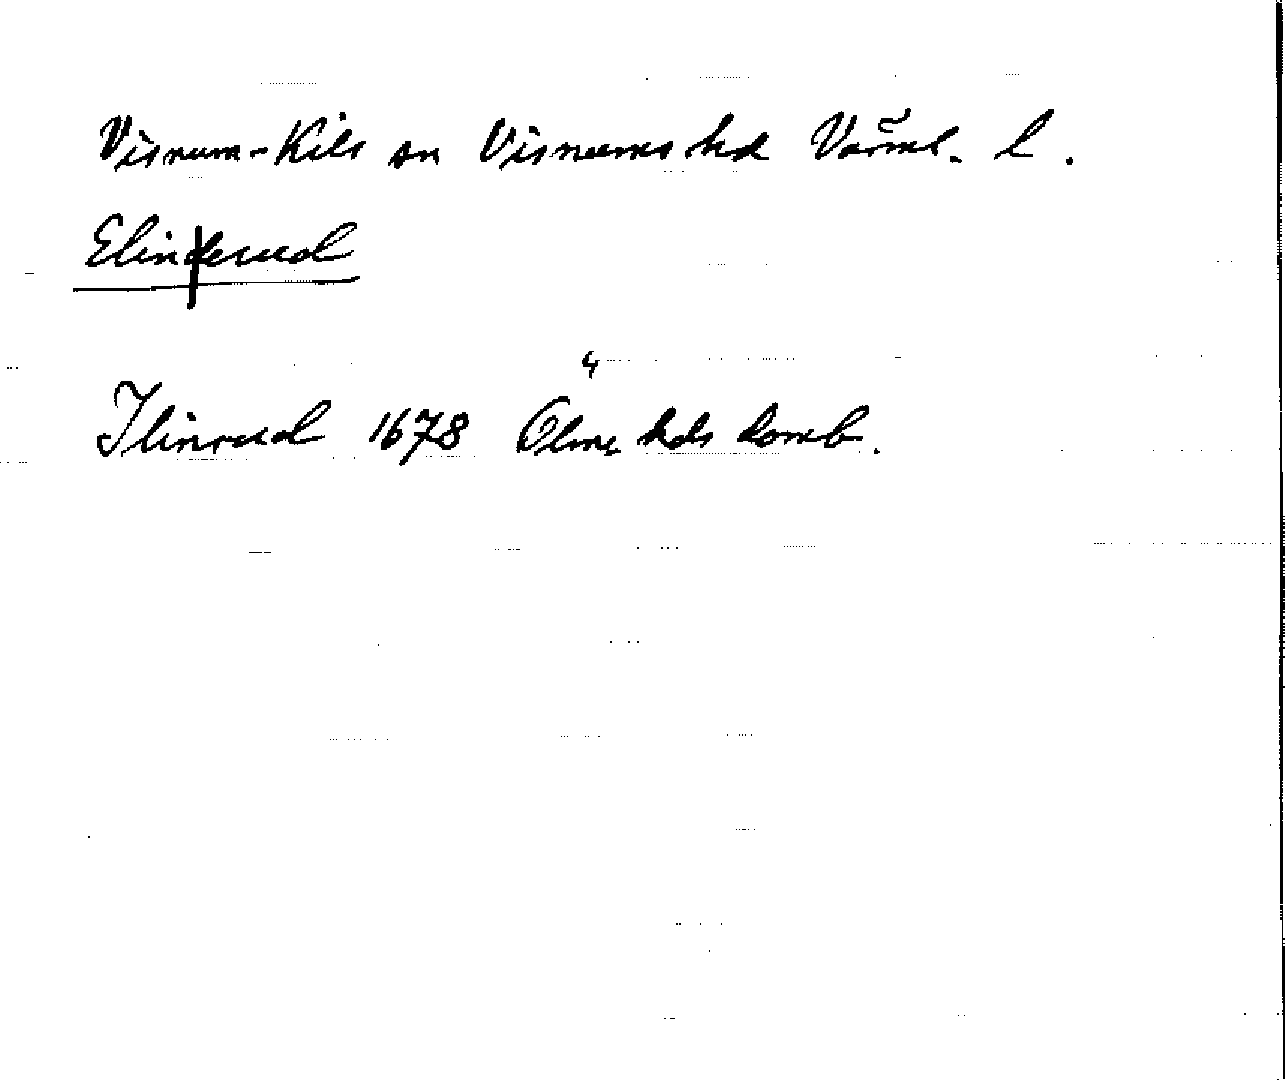 Visnum-Kils sn Visnums hd Värml. l.
Elinderud
4
Ilinrud 1678 Ölme hds domb.